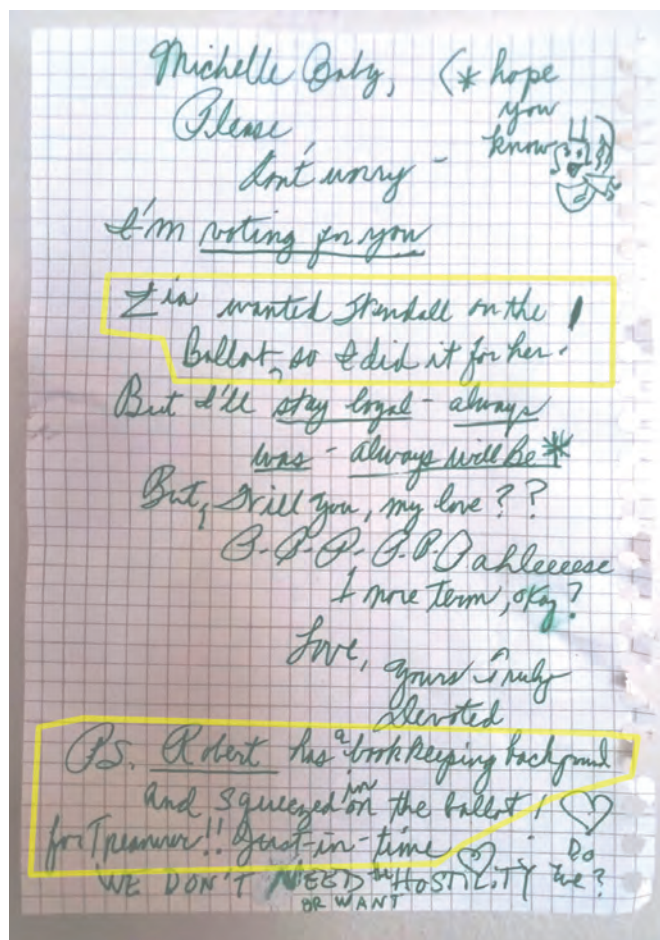 Michelle Baby, (* hope
you
know
Please,
don't worry -
I'm voting for you
Zia wanted Kendall on the !
Ballot, so I did it for her.
But I'll stay loyal - always
was - always will Be *
But, will you, my love ? ?
P-P-P-P-P-Pahleeeese
1 more Term, okay ?
Love,
yours Truly
Devoted
PS. Robert has a bookkeeping background
and squeezed in on the ballot !
for Treasurer!! Just-in-time
WE DON'T NEED the HOSTILITY Do we?
OR WANT